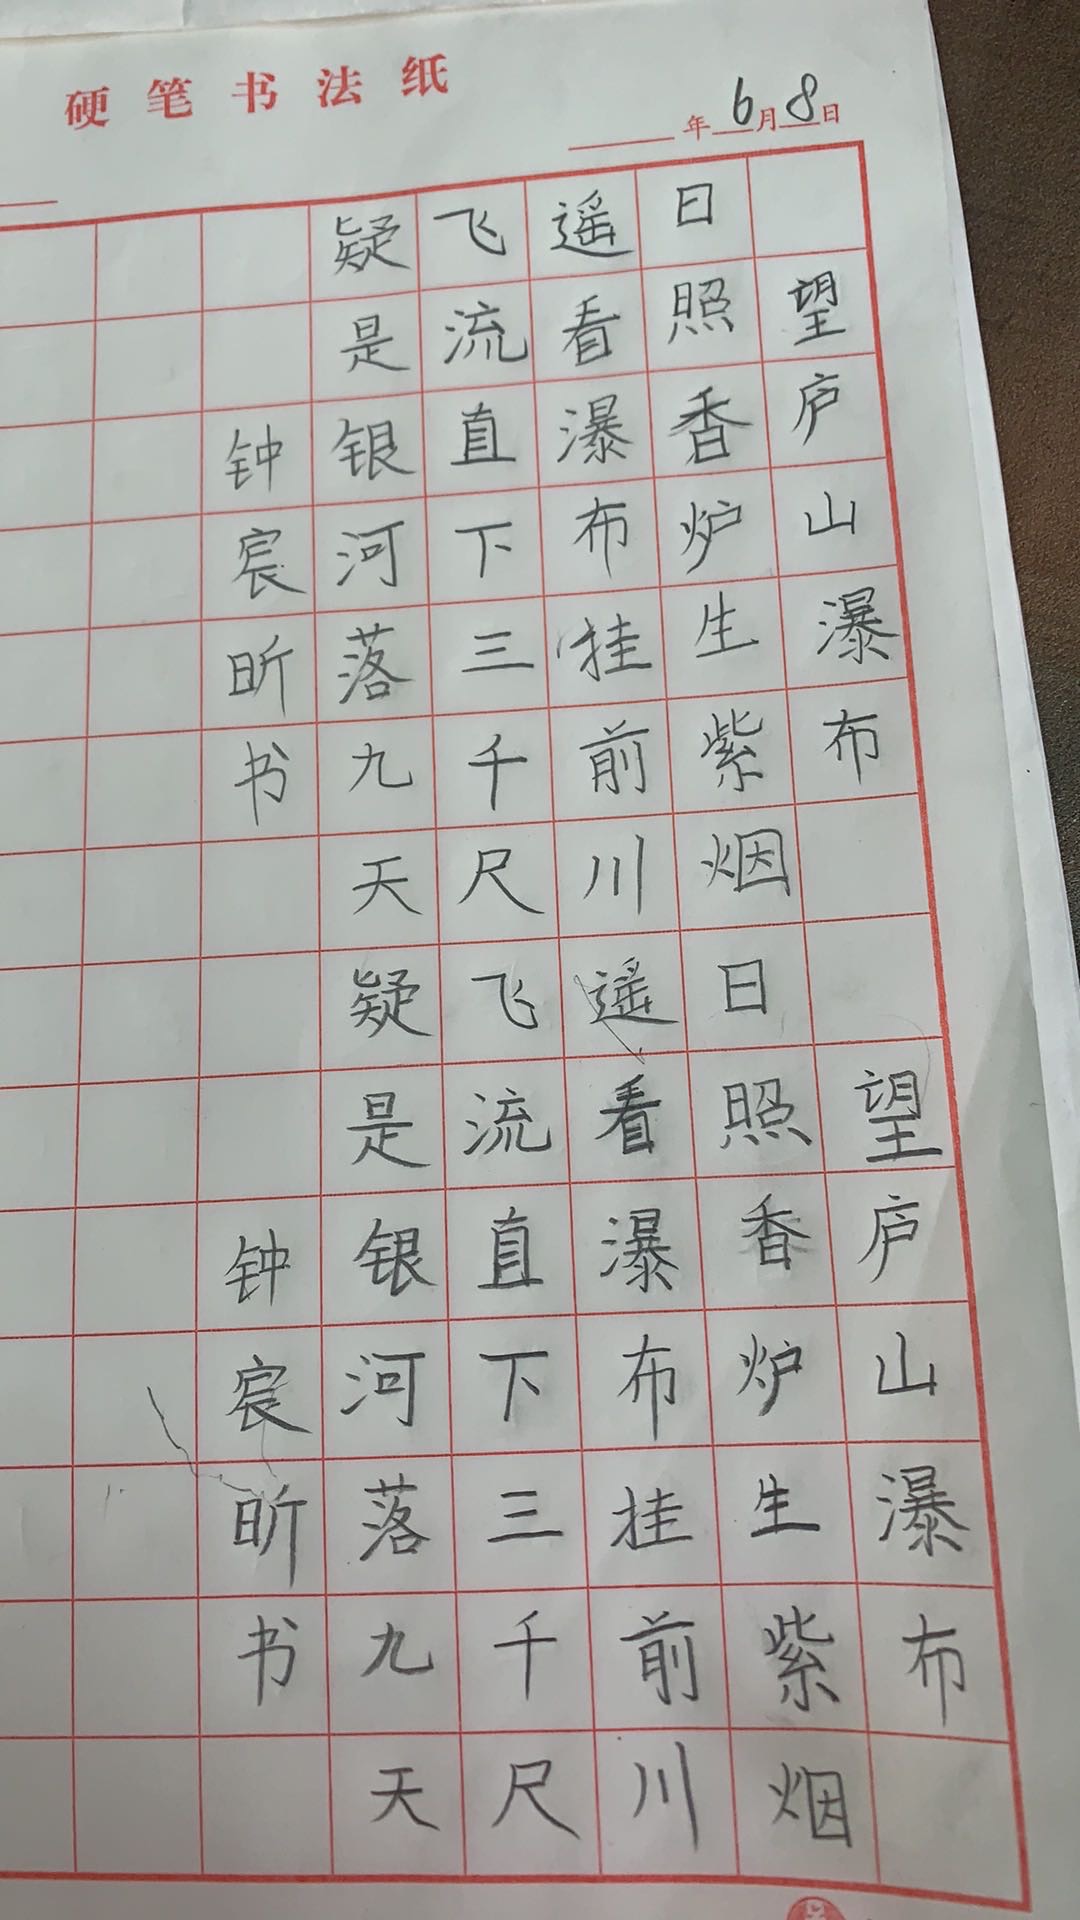 硬笔书法纸
年6月8日
望庐山瀑布
日照香炉生紫烟
遥看瀑布挂前川
飞流直下三千尺
疑是银河落九天
钟宸昕书
望庐山瀑布
日照香炉生紫烟
遥看瀑布挂前川
飞流直下三千尺
疑是银河落九天
钟宸昕书